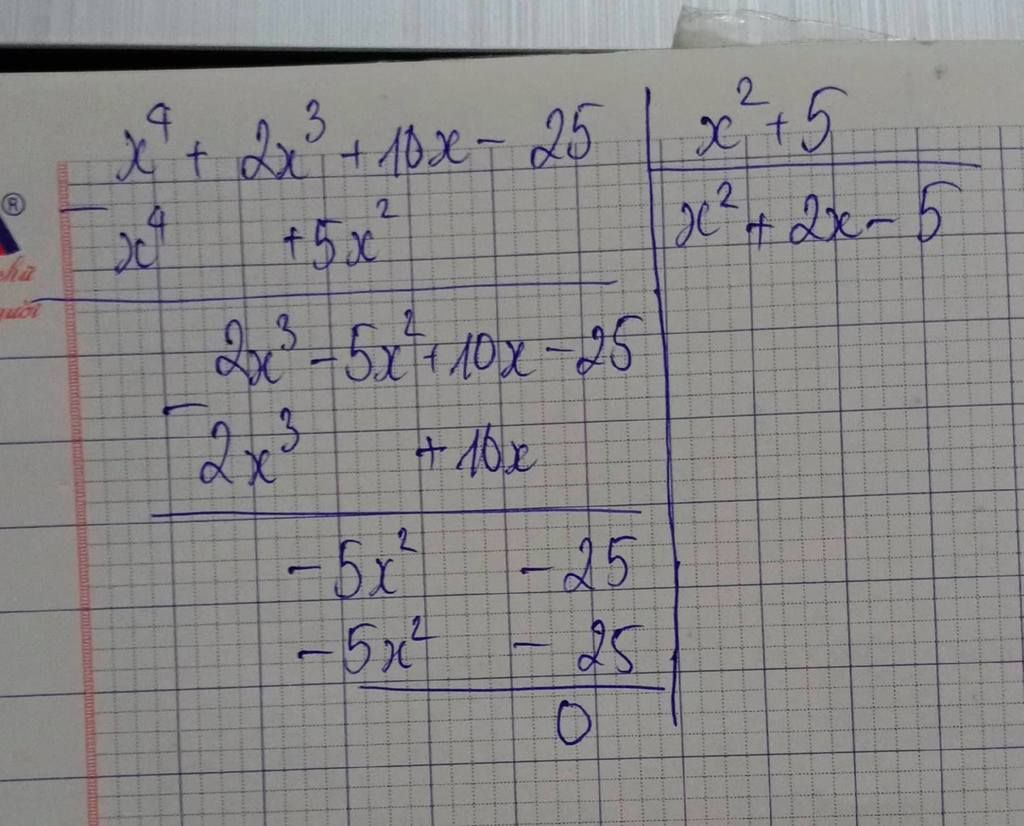 x⁴ + 2x³ + 10x - 25 | x² + 5
- x⁴ + 5x² | x² + 2x - 5
2x³ - 5x² + 10x - 25
- 2x³ + 10x
- 5x² - 25
- 5x² - 25
0
®